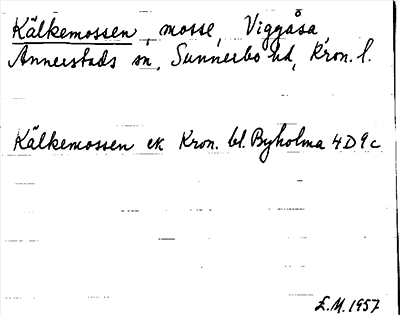 Kälkemossen, mosse, Viggåsa,
Annerstads sn, Sunnerbo hd, Kron. l.
Kälkemossen ek Kron. bl. Byholma 4D9c
L.M. 1957